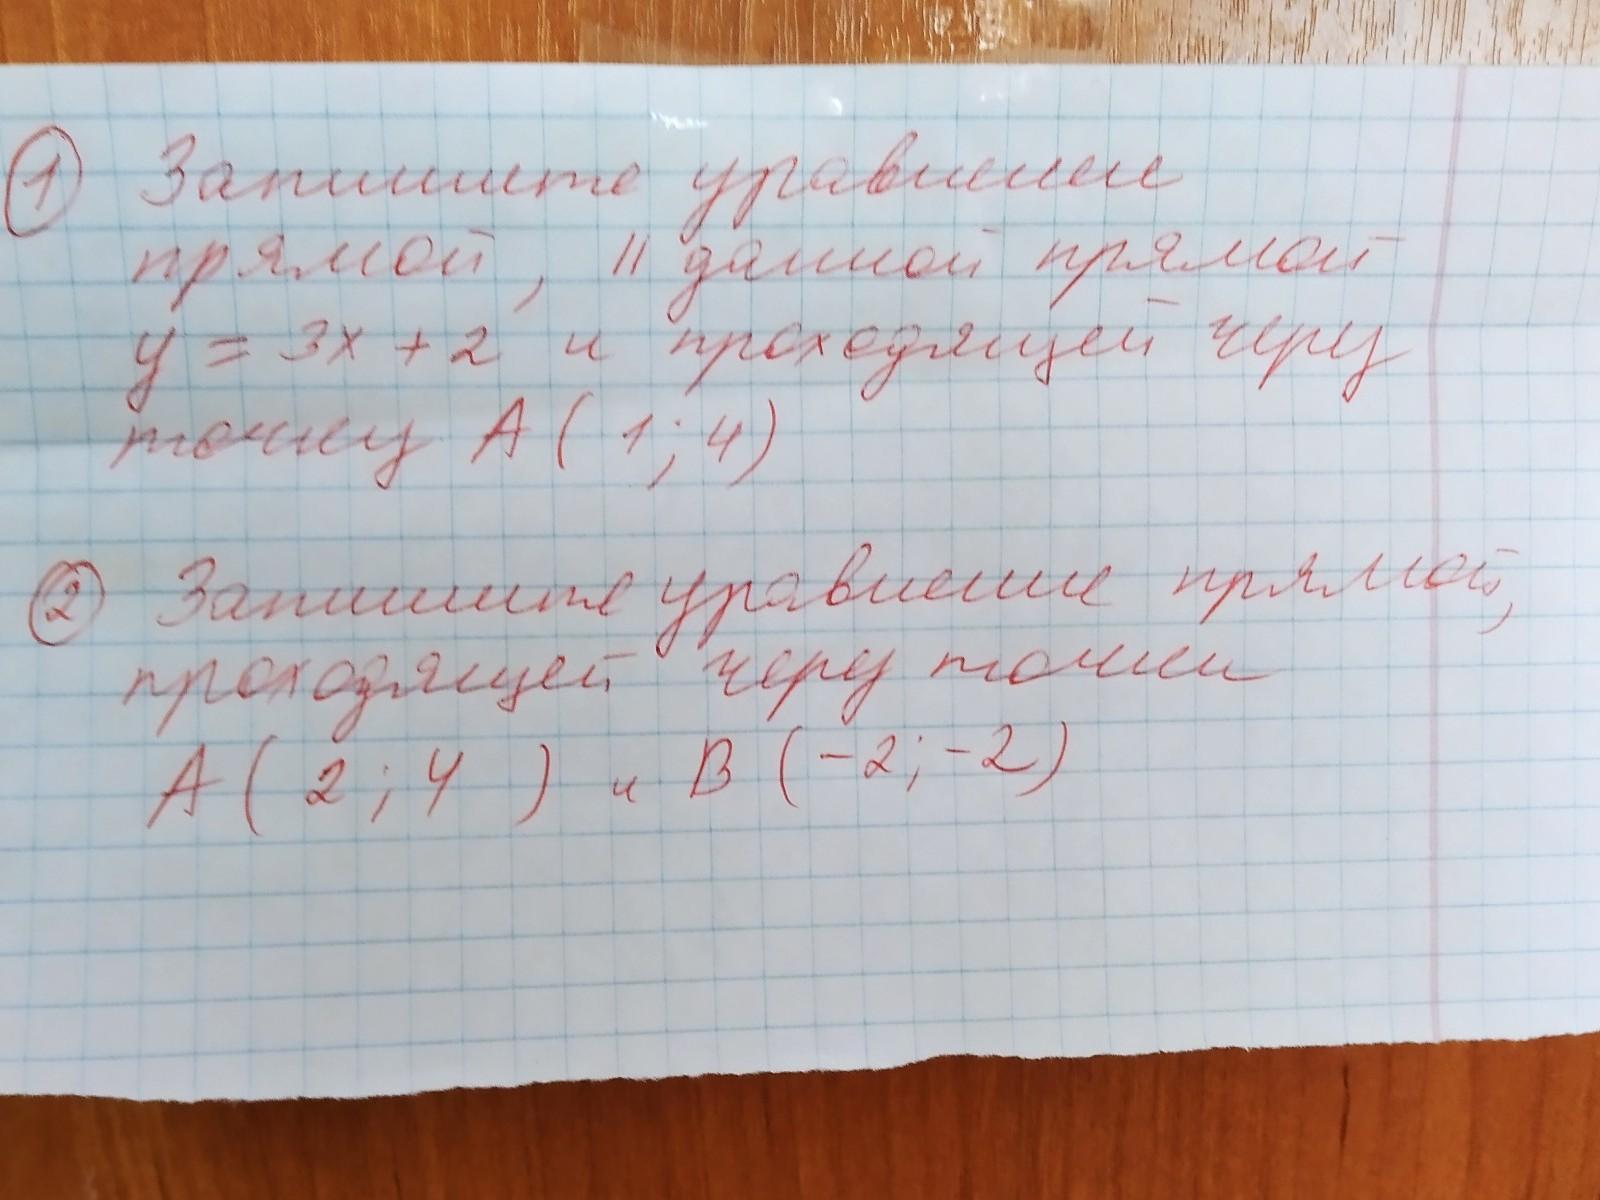 ① Запишите уравнение
прямой, || данной прямой
y = 3x + 2 и проходящей через
точку A ( 1 ; 4 )
② Запишите уравнение прямой,
проходящей через точки
A ( 2 ; 4 ) и B ( -2 ; -2 )